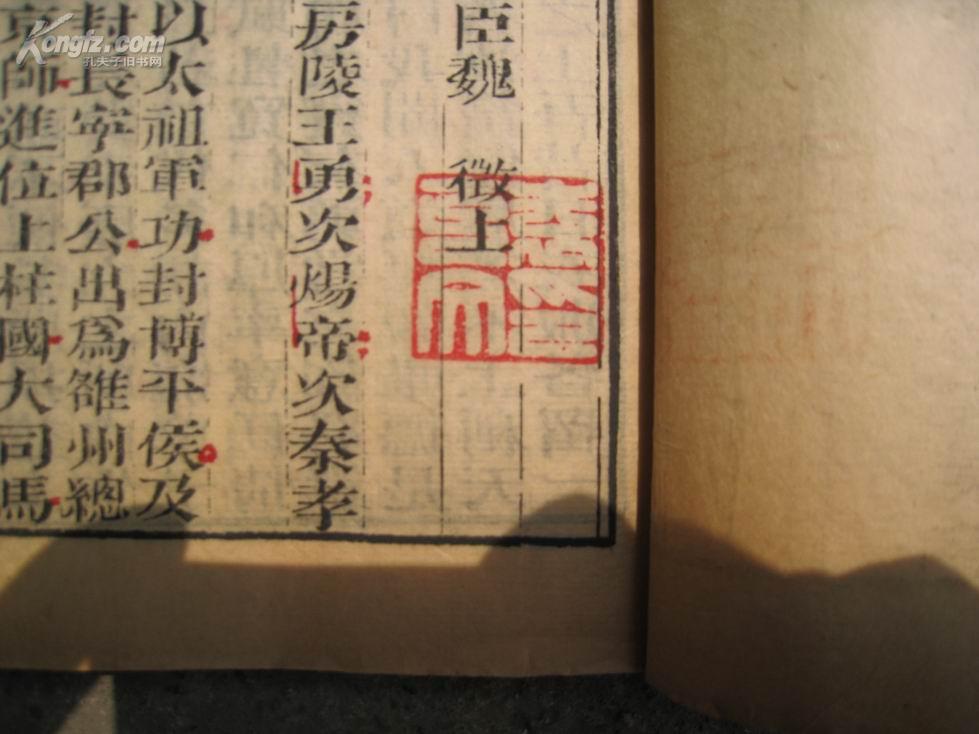 臣魏 徵上
房陵王勇次煬帝次秦孝
以太祖軍功封博平侯及
封長寧郡公出爲雒州總
京師進位上柱國大司馬
Kongfz.com
孔夫子旧书网